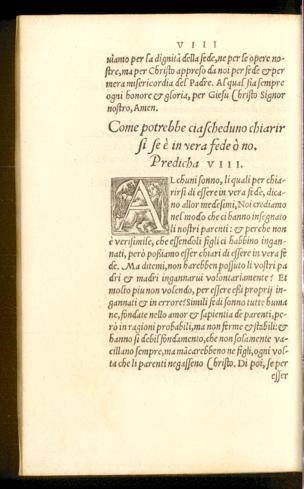 VIII
uiamo per la dignità della fede, ne per le opere no-
stre, ma per Christo appreso da noi per fede & per
mera misericordia del Padre. Al qual sia sempre
ogni honore & gloria, per Giesu Christo Signor
nostro, Amen.
Come potrebbe ciascheduno chiarir
si se è in vera fede ò no.
Predicha VIII.
ALchuni sonno, li quali per chia-
rirsi di essere in vera fede, dica-
no allor medesimi, Noi crediamo
nel modo che ci hanno insegnato
li nostri parenti: & perche non
è verisimile, che essendoli figli ci habbino ingan-
nati, però possiamo esser chiari di essere in vera fe
de. Ma ditemi, non harebben possuto li vostri pa
dri & madri ingannarui voluntariamente? Et
molto piu non volendo, per essere essi proprij in-
gannati & in errore? Simili fedi sonno tutte huma
ne, fondate nello amor & sapientia de parenti, pe-
rò in ragioni probabili, ma non ferme & stabili: &
hanno sì debil fondamento, che non solamente va-
cillano sempre, ma mācarebbeno ne figli, ogni vol-
ta che li parenti negasseno Christo. Di poi, se per
esser